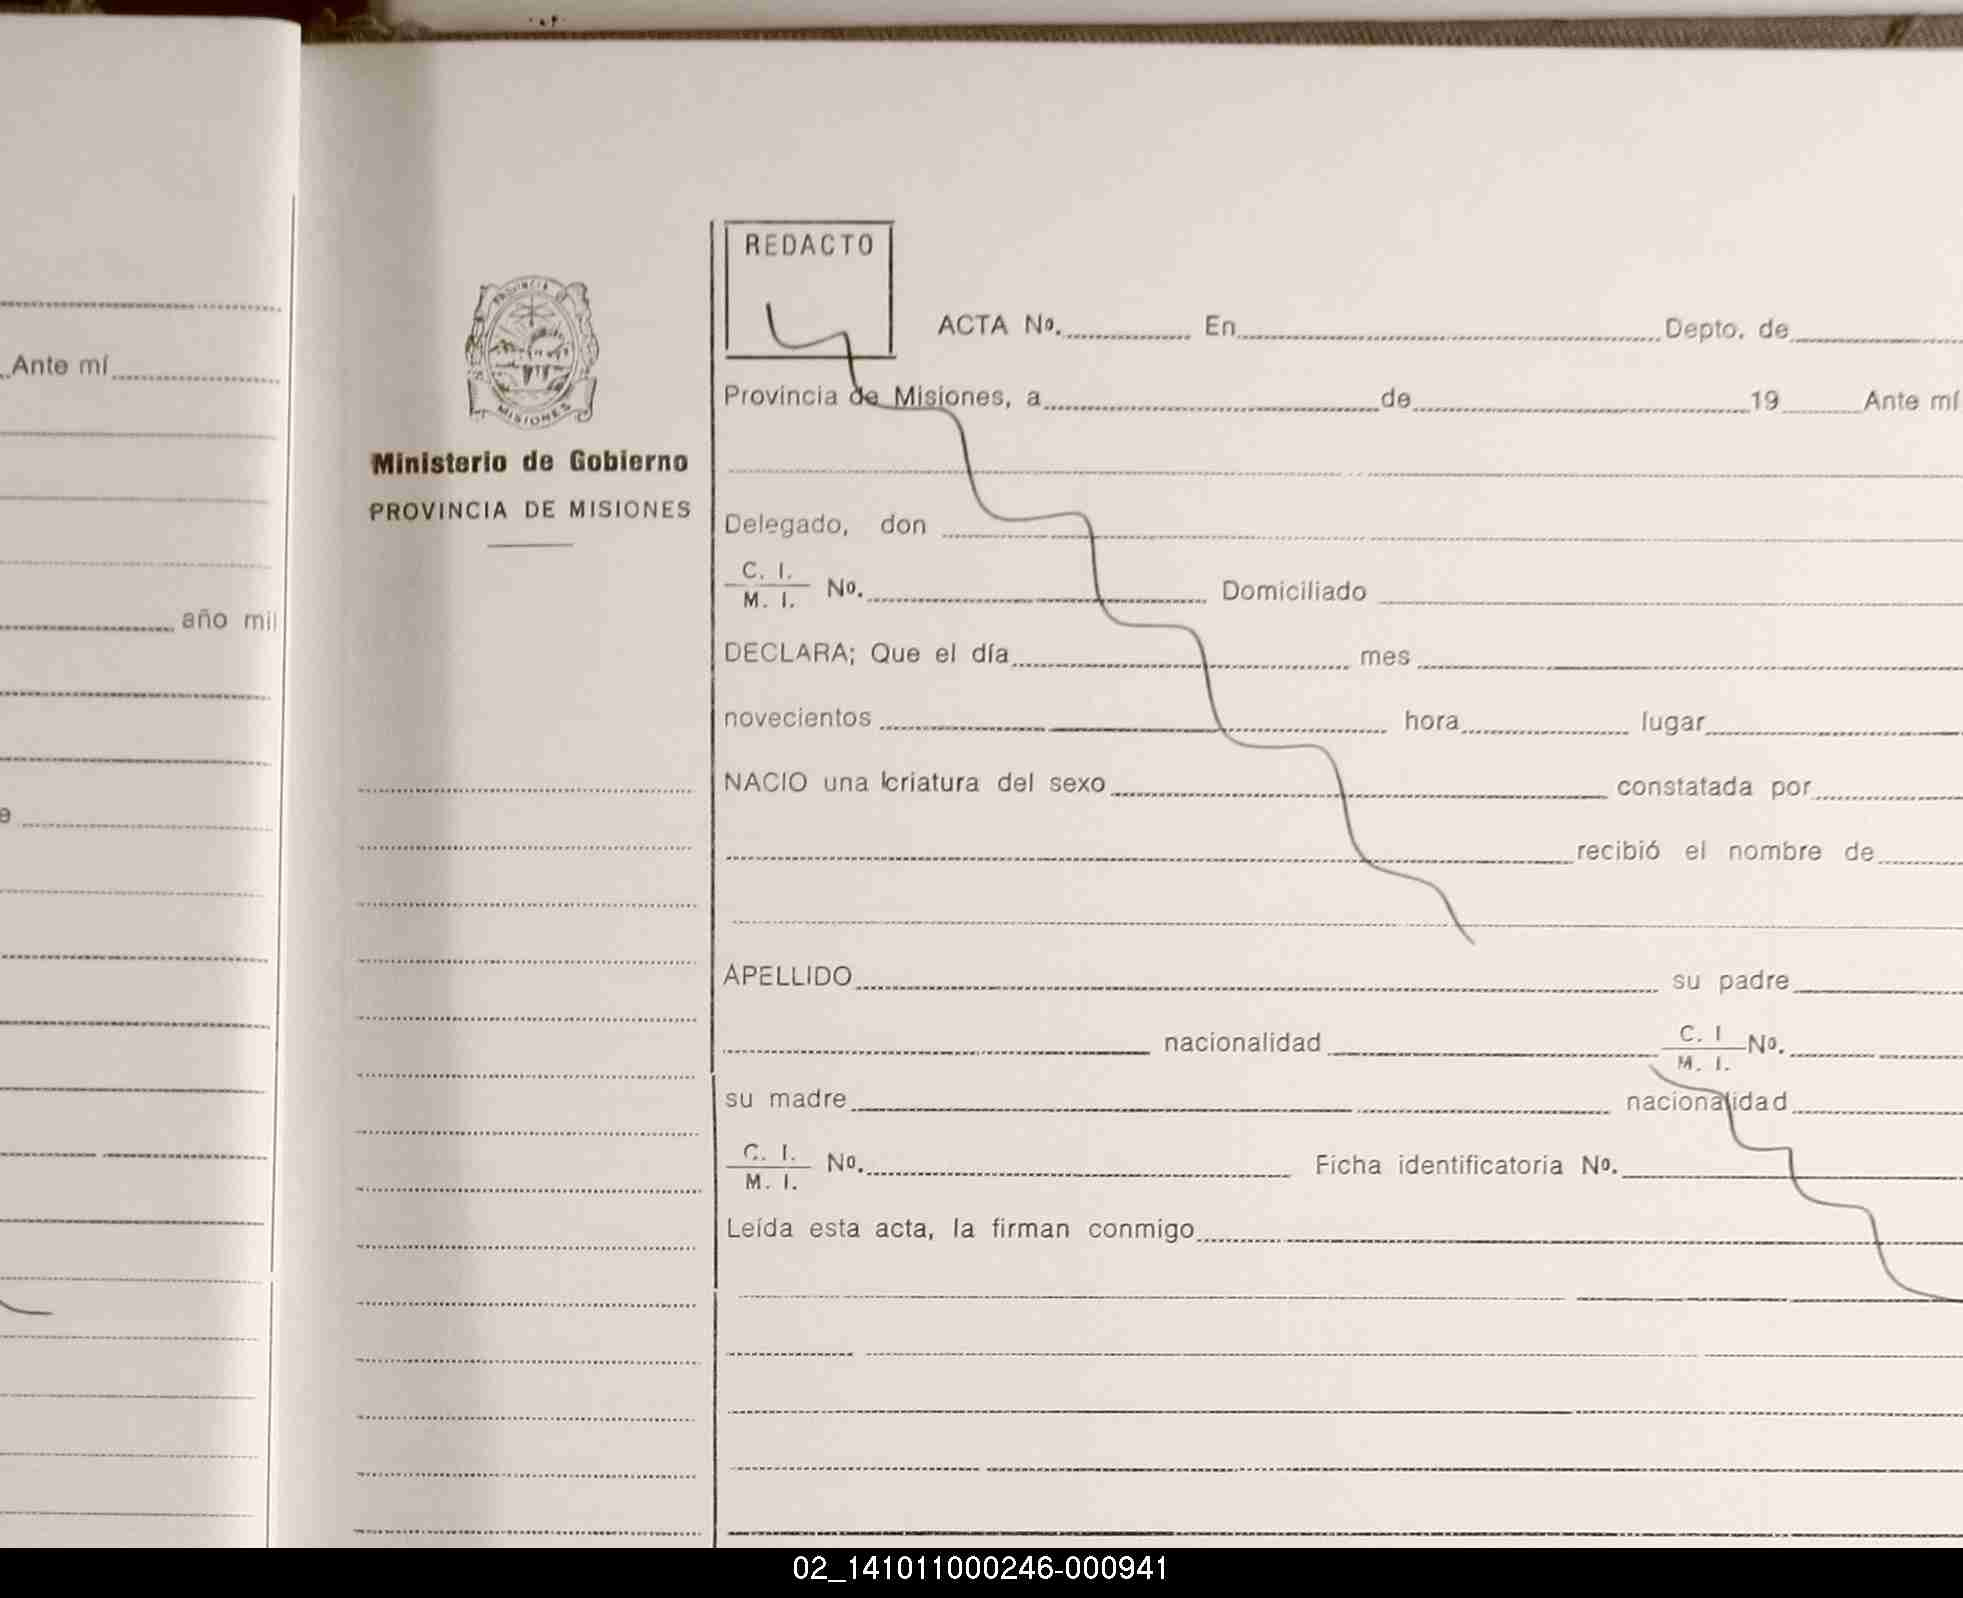 Ante mí
año mil
e
PROVINCIA DE
MISIONES
Ministerio de Gobierno
PROVINCIA DE MISIONES
REDACTO
ACTA Nº. En Depto. de
Provincia de Misiones, a de 19 Ante mí
Delegado, don
C. I.
M. I. Nº. Domiciliado
DECLARA; Que el día mes
novecientos hora lugar
NACIO una criatura del sexo constatada por
recibió el nombre de
APELLIDO su padre
nacionalidad C. I Nº.
M. I.
su madre nacionalidad
C. I. Nº. Ficha identificatoria Nº.
M. I.
Leída esta acta, la firman conmigo
02_141011000246-000941